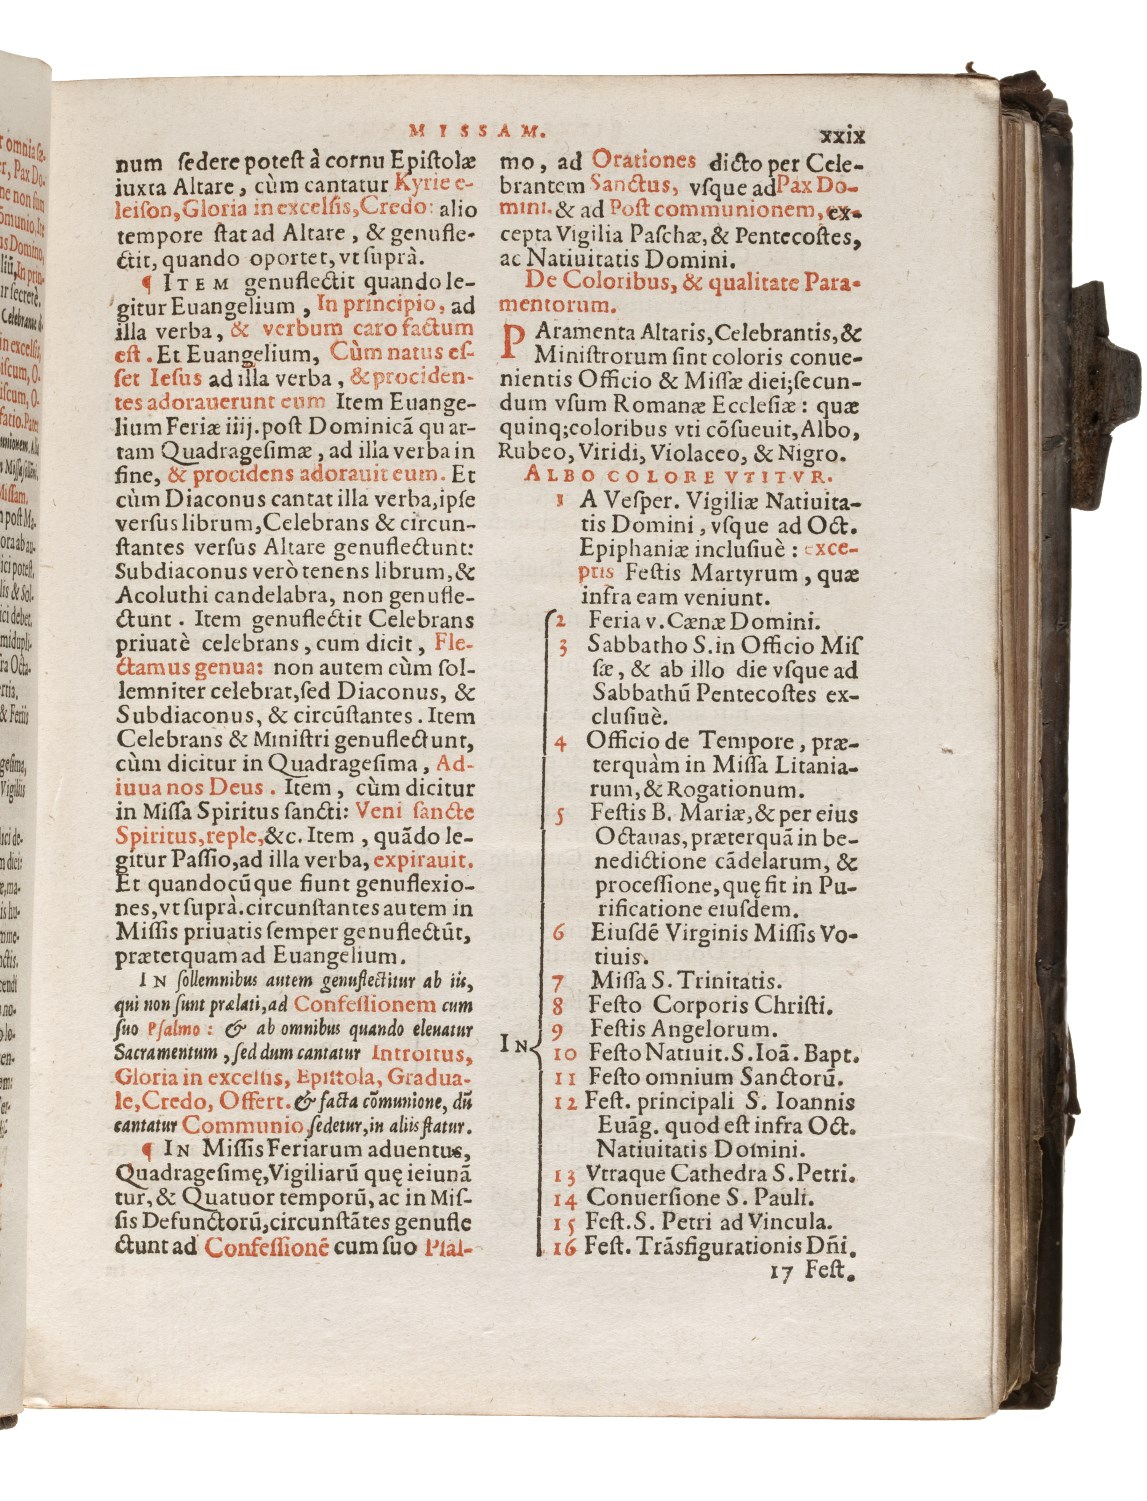 MISSAM.
xxix
num ſedere poteſt à cornu Epiſtolæ
iuxta Altare, cùm cantatur Kyrie e-
leiſon, Gloria in excelſis, Credo: alio
tempore ſtat ad Altare, & genufle-
ctit, quando oportet, vt ſuprà.
¶ ITEM genuflectit quando le-
gitur Euangelium, In principio, ad
illa verba, & verbum caro factum
eſt. Et Euangelium, Cùm natus eſ-
ſet Ieſus ad illa verba, & prociden-
tes adorauerunt eum Item Euange-
lium Feriæ iiij. poſt Dominicã quar-
tam Quadrageſimæ, ad illa verba in
fine, & procidens adorauit eum. Et
cùm Diaconus cantat illa verba, ipſe
verſus librum, Celebrans & circun-
ſtantes verſus Altare genuflectunt:
Subdiaconus verò tenens librum, &
Acoluthi candelabra, non genufle-
ctunt. Item genuflectit Celebrans
priuatè celebrans, cum dicit, Fle-
ctamus genua: non autem cùm ſol-
lemniter celebrat, ſed Diaconus, &
Subdiaconus, & circũſtantes. Item
Celebrans & Miniſtri genuflectunt,
cùm dicitur in Quadrageſima, Ad-
iuua nos Deus. Item, cùm dicitur
in Miſſa Spiritus ſancti: Veni ſancte
Spiritus, reple, &c. Item, quãdo le-
gitur Paſſio, ad illa verba, expirauit.
Et quandocũque fiunt genuflexio-
nes, vt ſuprà. circunſtantes autem in
Miſſis priuatis ſemper genuflectũt,
præterquam ad Euangelium.
IN ſollemnibus autem genuflectitur ab iis,
qui non ſunt prælati, ad Confeſſionem cum
ſuo Pſalmo: & ab omnibus quando eleuatur
Sacramentum, ſed dum cantatur Introitus,
Gloria in excelſis, Epiſtola, Gradua-
le, Credo, Offert. & facta cõmunione, dũ
cantatur Communio ſedetur, in aliis ſtatur.
¶ IN Miſſis Feriarum aduentus,
Quadrageſimę, Vigiliarũ quę ieiunã
tur, & Quatuor temporũ, ac in Miſ-
ſis Defunctorũ, circunſtãtes genufle
ctunt ad Confeſſionẽ cum ſuo Pſal-
mo, ad Orationes dicto per Cele-
brantem Sanctus, vſque ad Pax Do-
mini. & ad Poſt communionem, ex-
cepta Vigilia Paſchæ, & Pentecoſtes,
ac Natiuitatis Domini.
De Coloribus, & qualitate Para-
mentorum.
PAramenta Altaris, Celebrantis, &
Miniſtrorum ſint coloris conue-
nientis Officio & Miſſæ diei; ſecun-
dum vſum Romanæ Eccleſiæ: quæ
quinq; coloribus vti cõſueuit, Albo,
Rubeo, Viridi, Violaceo, & Nigro.
ALBO COLORE VTITVR.
1 A Veſper. Vigiliæ Natiuita-
tis Domini, vſque ad Oct.
Epiphaniæ incluſiuè: exce-
ptis Feſtis Martyrum, quæ
infra eam veniunt.
2 Feria v. Cænæ Domini.
3 Sabbatho S. in Officio Miſ
ſæ, & ab illo die vſque ad
Sabbathũ Pentecoſtes ex-
cluſiuè.
4 Officio de Tempore, præ-
terquàm in Miſſa Litania-
rum, & Rogationum.
5 Feſtis B. Mariæ, & per eius
Octauas, præterquã in be-
nedictione cãdelarum, &
proceſſione, quę fit in Pu-
rificatione eiuſdem.
6 Eiuſdẽ Virginis Miſſis Vo-
tiuis.
7 Miſſa S. Trinitatis.
8 Feſto Corporis Chriſti.
9 Feſtis Angelorum.
IN
10 Feſto Natiuit. S. Ioã. Bapt.
11 Feſto omnium Sanctorũ.
12 Feſt. principali S. Ioannis
Euãg. quod eſt infra Oct.
Natiuitatis Domini.
13 Vtraque Cathedra S. Petri.
14 Conuerſione S. Pauli.
15 Feſt. S. Petri ad Vincula.
16 Feſt. Trãsfigurationis Dñi.
17 Feſt.